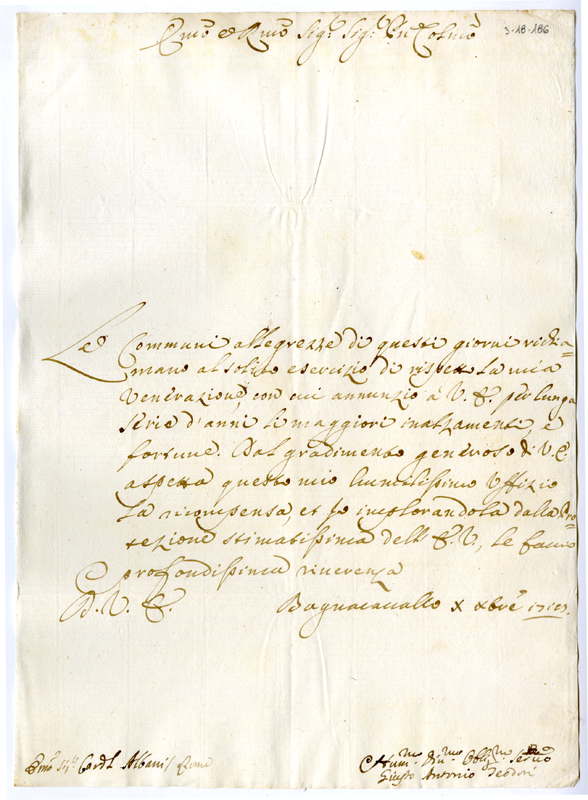 Emo e Rmo Sigr Sigr Pnē Colmō
3-18-186
Le Communi allegrezze di questi giorni richia=
mano al solito esercizio di rispetto la mia
venerazione, con cui annunzio à V. E. per lunga
serie d'anni li maggiori inalzamenti, e
fortune. Dal gradimento generoso di V. E.
aspetta questo mio humilissimo Uffizio
la ricompensa, et io implorandola dalla Pro=
tezione stimatissima dell' E. V., le faccio
profondissima riverenza
D. V. E.
Bagnacavallo X Xbre
Emo Sigr Cardl Albani / Roma
Humo Divmo Oblgmo Servo
Giusto Antonio Teodori